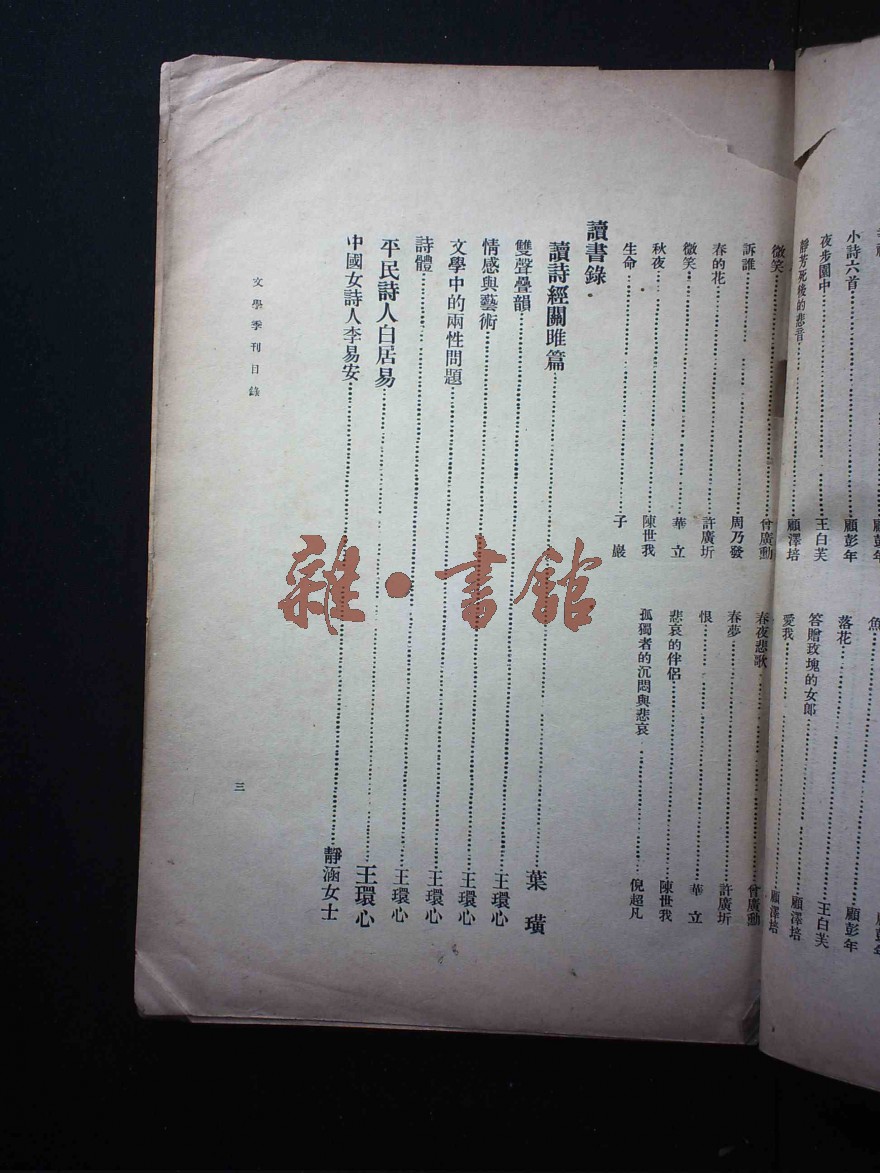 小詩六首……顧彭年
落花……顧彭年
夜步園中……王白芙
答贈玫瑰的女郎……王白芙
靜芳死後的悲音……顧澤培
愛我……顧澤培
微笑……曾廣勳
春夜悲歌……曾廣勳
訴誰……周乃發
春夢……許廣圻
春的花……許廣圻
恨……華立
微笑……華立
悲哀的伴侶……陳世我
秋夜……陳世我
孤獨者的沉悶與悲哀……倪超凡
生命……子巖
讀書錄
讀詩經關雎篇……葉璜
雙聲疊韻……王環心
情感與藝術……王環心
文學中的兩性問題……王環心
詩體……王環心
平民詩人白居易……王環心
中國女詩人李易安……靜涵女士
文學季刊目錄
三
雜·書館